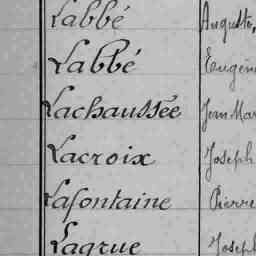 Labbé Auguste,
Labbé Eugèn
Lachaussée Jean Mar
Lacroix Joseph
Lafontaine Pierre
Lagrue Joseph